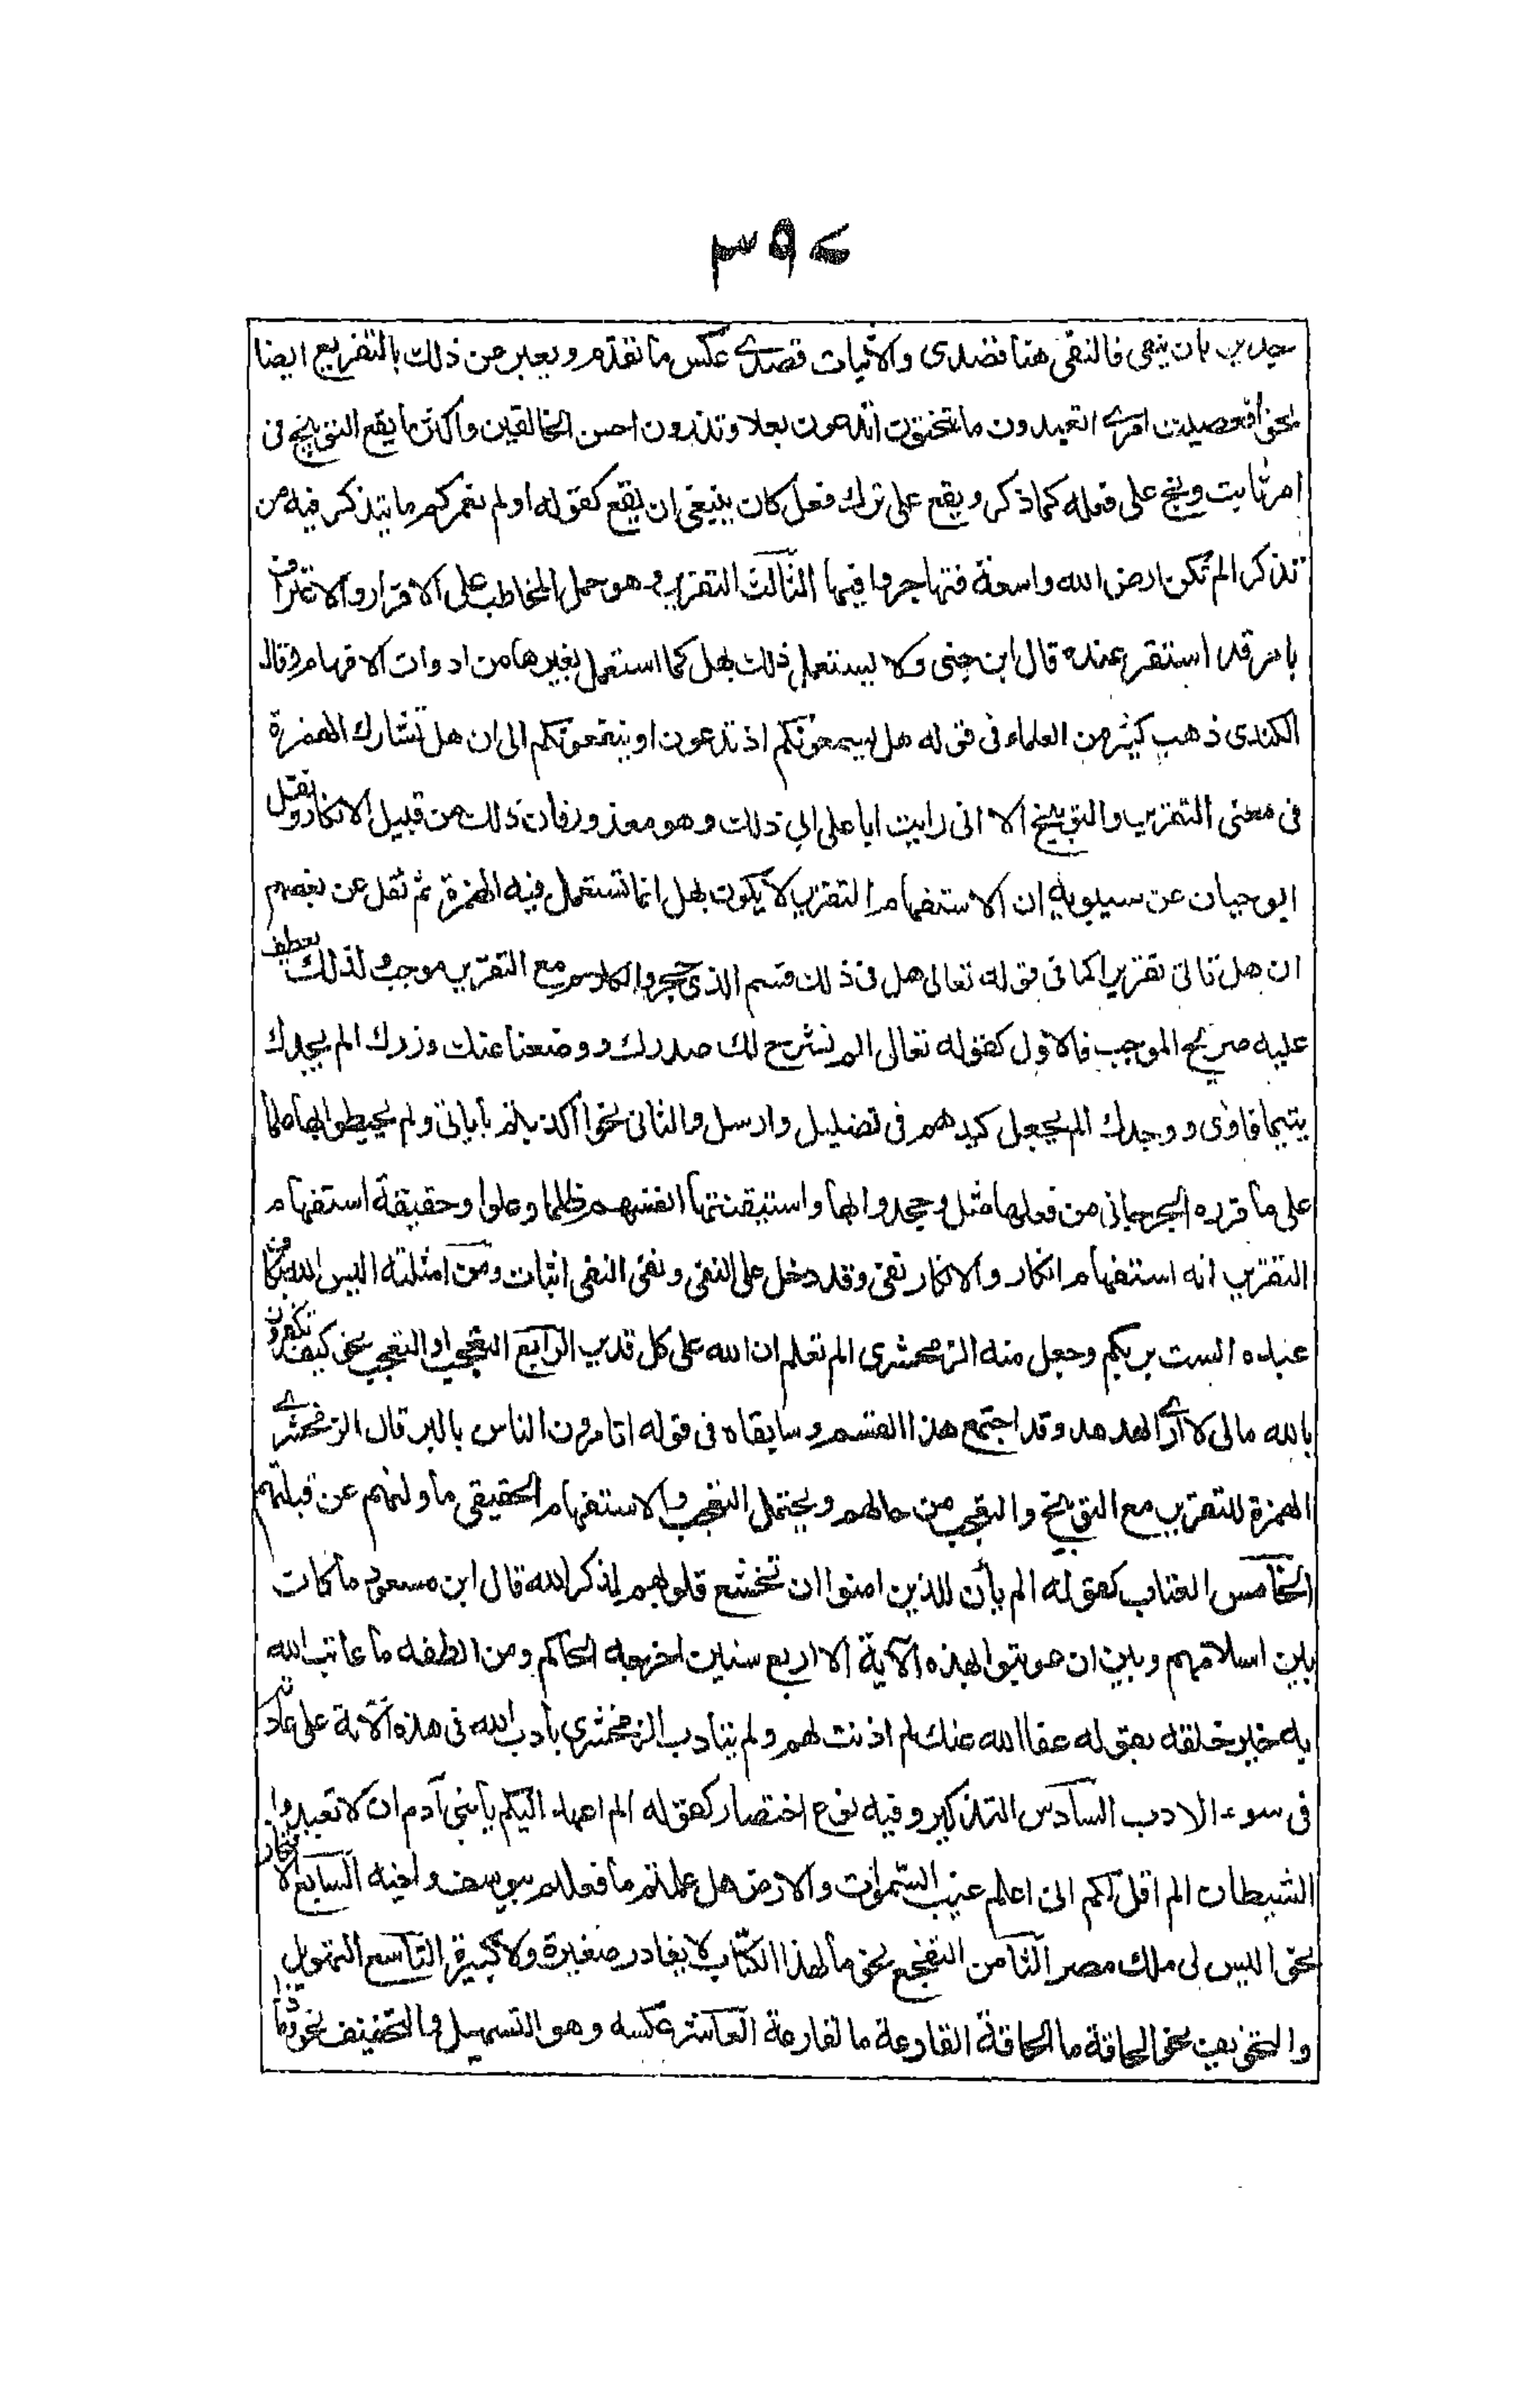 ٣٩٤
جدير بان ينفى فالنفى هنا قصدى والاثبات قصدے عكس ما تقدم ويعبر عن ذلك بالتقريع ايضا
نحو افعصيت امرے اتعبدون ما تنحتون اتدعون بعلا وتذرون احسن الخالقين واكثر ما يقع التوبيخ فى
امر ثابت وبخ على فعله كما ذكر ويقع على ترك فعل كان ينبغى ان يقع كقوله اولم نعمركم ما يتذكر فيه من
تذكر الم تكن ارض الله واسعة فتهاجروا فيها الثالث التقرير وهو حمل المخاطب على الاقرار والاعتراف
بامر قد استقر عنده قال ابن جنى ولا يستعمل ذلك بهل كما استعمل بغيرها من ادوات الافهام وقال
الكندى ذهب كثير من العلماء فى قوله هل يسمعونكم اذ تدعون او ينفعونكم الى ان هل تشارك الهمزة
فى معنى التقرير والتوبيخ الا انى رايت ابا على ابى ذلك وهو معذور فان ذلك من قبيل الانكار ونقل
ابو حيان عن سيبويه ان الاستفهام التقرير لا يكون بهل انما تستعمل فيه الهمزة ثم نقل عن بعضهم
ان هل تاتى تقريرا كما فى قوله تعالى هل فى ذلك قسم الذى حجر والكلام مع التقرير موجب ولذلك يعطف
عليه صريح الموجب فالاول كقوله تعالى الم نشرح لك صدرك ووضعنا عنك وزرك الم يجدك
يتيما فاوى ووجدك الم يجعل كيدهم فى تضليل وارسل والثانى نحو اكذبتم باياتى ولم تحيطوا بها علما
على ما قرره الجرجانى من فعلها مثل وجحدوا بها واستيقنتها انفسهم ظلما وعلوا وحقيقة استفهام
التقرير انه استفهام انكار والانكار نفى وقد دخل على النفى ونفى النفى اثبات ومن امثلته اليس الله بكاف
عباده الست بربكم وجعل منه الزمخشرى الم تعلم ان الله على كل قدير الرابع التعجب او التعجيب نحو كيف تكفرون
بالله مالى لا ارى الهدهد وقد اجتمع هذا القسم وسابقاه فى قوله اتامرون الناس بالبر قال الزمخشرے
الهمزة للتقرير مع التوبيخ والتعجب من حالهم ويحتمل التعجب والاستفهام الحقيقى ما ولهم عن قبلتهم
الخامس العتاب كقوله الم يأن للذين امنوا ان تخشع قلوبهم لذكر الله قال ابن مسعود ما كان
بين اسلامهم وبين ان عوتبوا بهذه الآية الا اربع سنين اخرجه الحاكم ومن الطفه ما عاتب الله
به خير خلقه بقوله عفا الله عنك لم اذنت لهم ولم يتادب الزمخشرى بأدب الله فى هذه الآية على عادته
فى سوء الادب السادس التذكير وفيه نوع اختصار كقوله الم اعهد اليكم يا بنى آدم ان لا تعبدوا
الشيطان الم اقل لكم انى اعلم غيب السموات والارض هل علمتم ما فعلتم بيوسف واخيه السابع الافتخار
نحو اليس لى ملك مصر الثامن التفجع نحو ما لهذا الكتاب لا يغادر صغيرة ولا كبيرة التاسع التهويل
والتخويف نحو الحاقة ما الحاقة القارعة ما لقارعة العاشر عكسه وهو التسهيل والتخفيف نحو وماذا